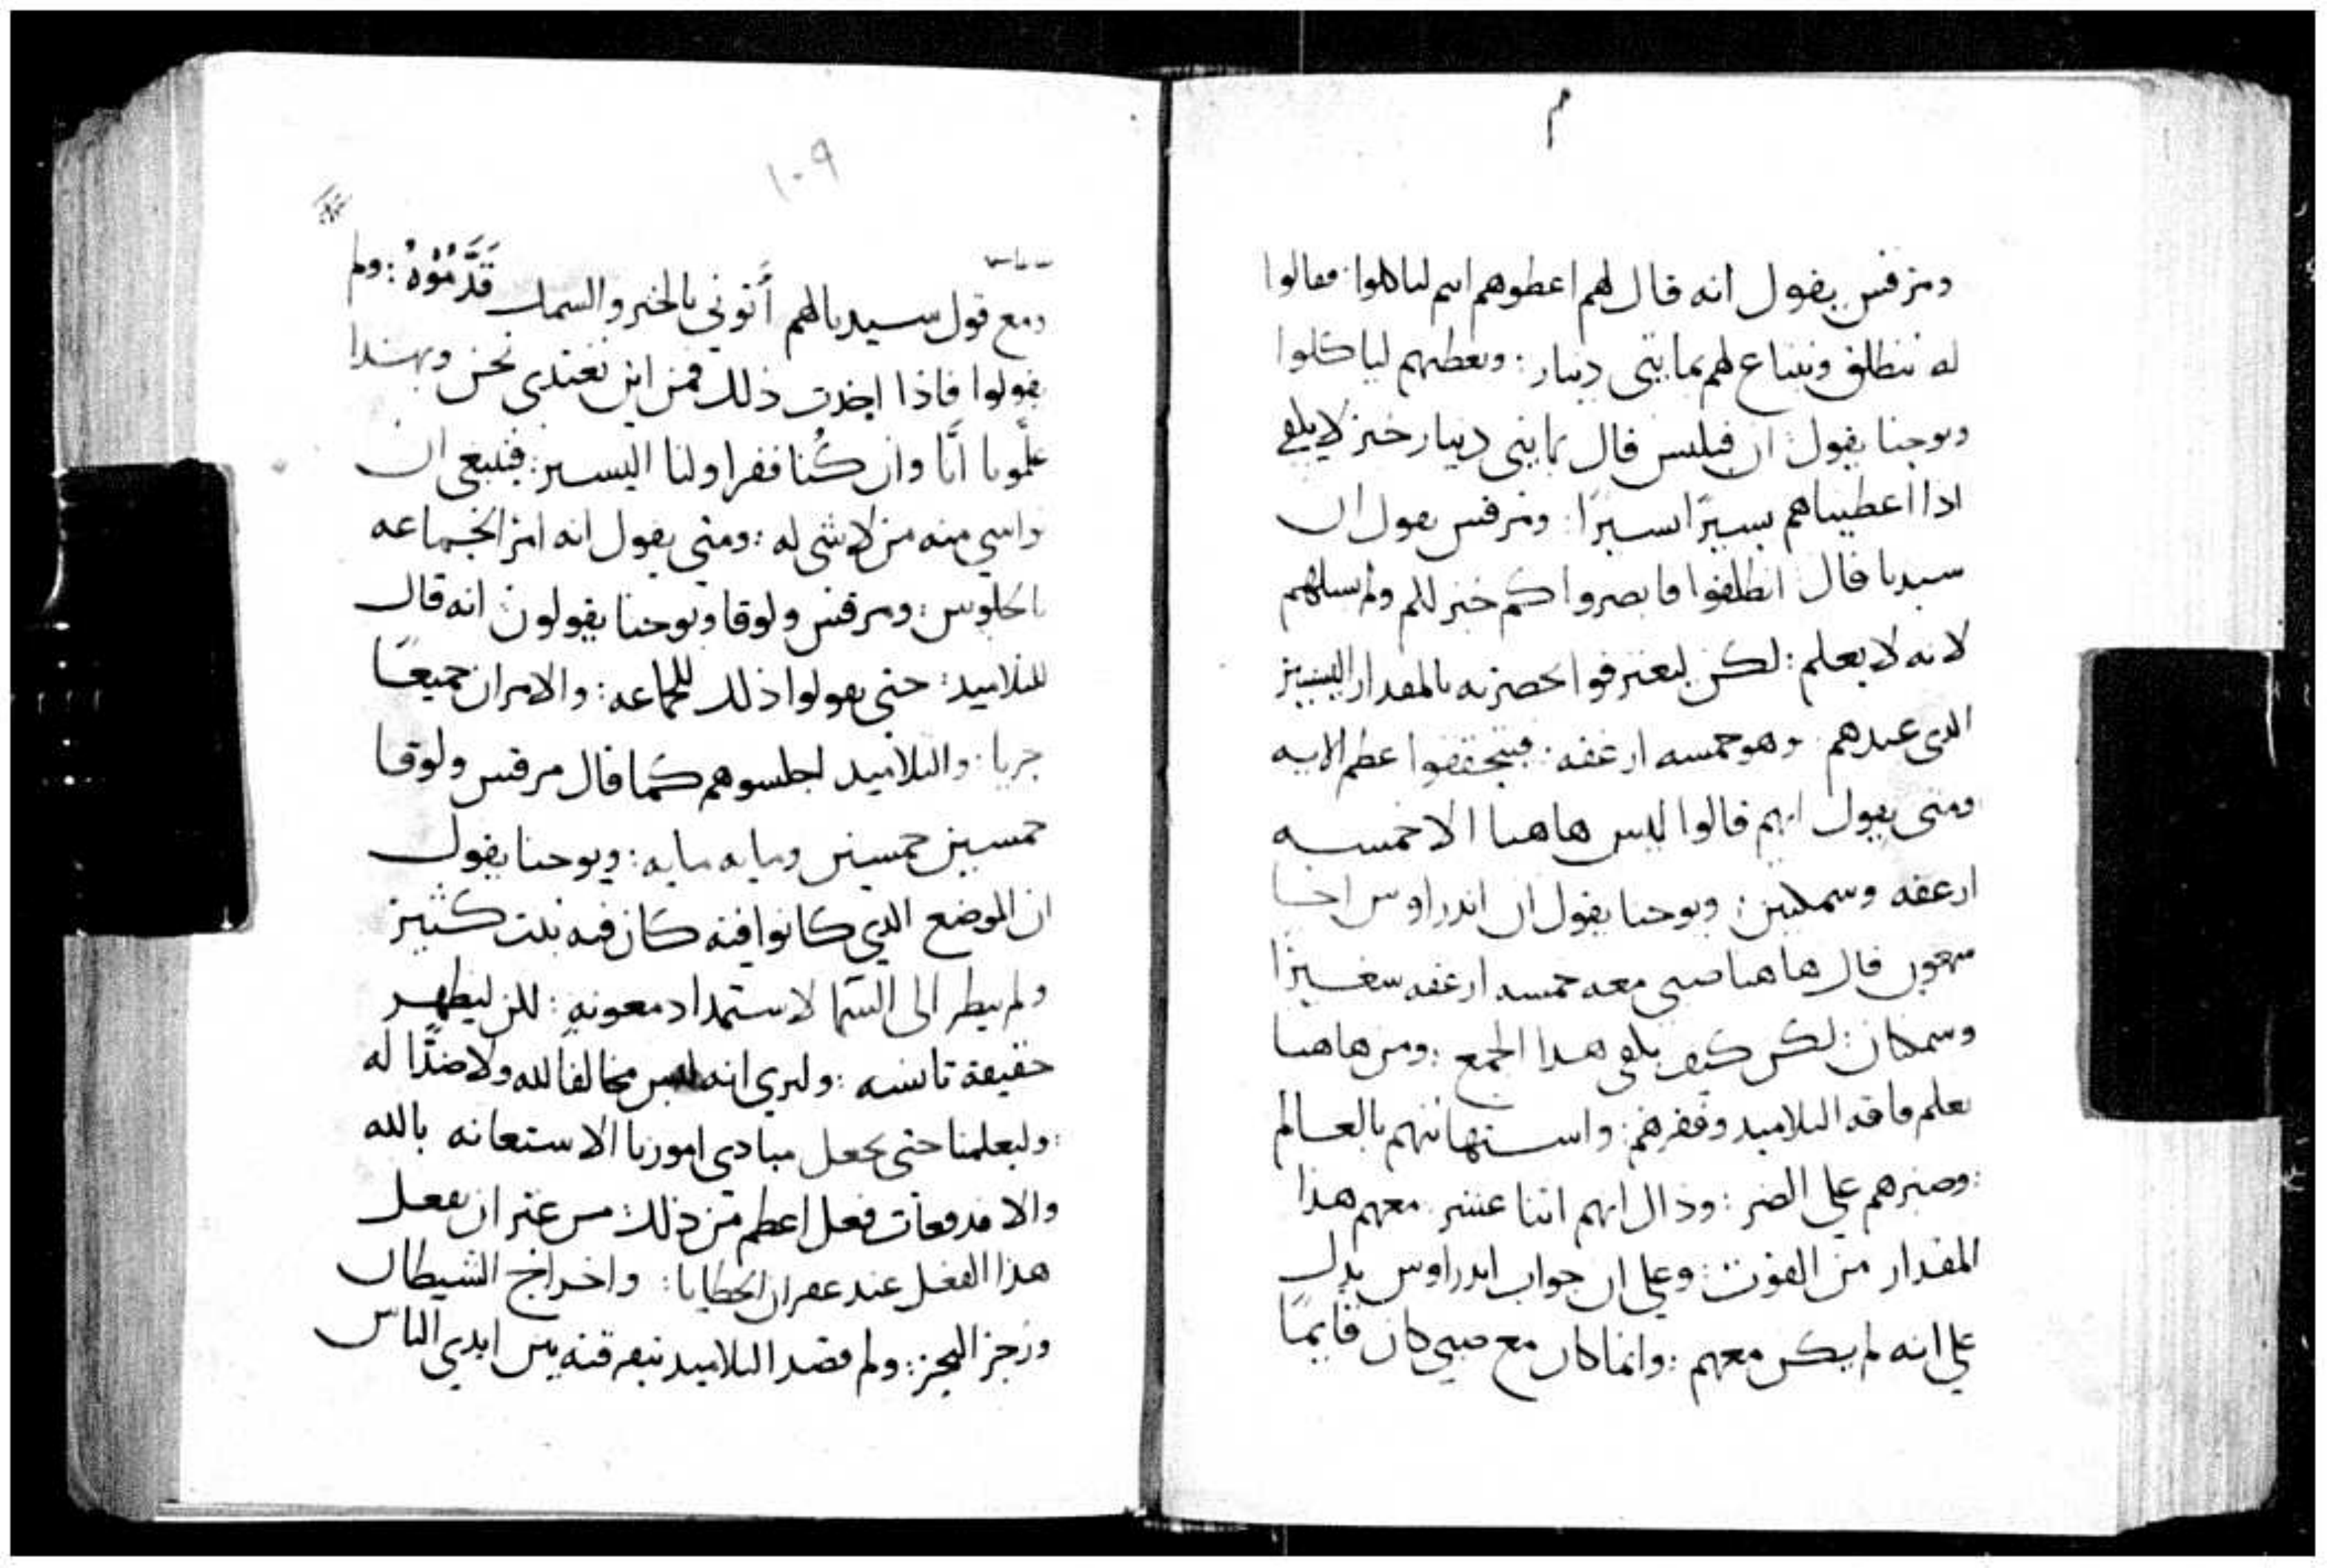 م
ومرقس يقول انه قال لهم اعطوهم انتم لياكلوا فقالوا
له ننطلق ونبتاع لهم بمايتى دينار : ونعطيهم لياكلوا
ويوحنا يقول ان فيلبس قال بمايتي دينار خبز لا يكفي
اذا اعطيناهم يسيرًا يسيرًا : ومرقس يقول ان
سيدنا قال انطلقوا فابصروا كم خبز لكم ولم يسلهم
لانه لا يعلم : لكن ليعترفوا بحضرته بالمقدار اليسير
الذي عندهم وهو خمسه ارغفه : فيتحققوا عظم الايه
ومتى يقول انهم قالوا ليس هاهنا الا خمسه
ارغفه وسمكتين : ويوحنا يقول ان اندراوس اخا
سمعون قال هاهنا صبى معه خمسه ارغفه سعيرًا
وسمكتان : لكن كيف يكفى هذا الجمع : ومن هاهنا
يعلم فاقه التلاميد وفقرهم : واستهانتهم بالعالم
: وصبرهم على الضر : وذاك انهم اثنا عشر معهم هذا
المقدار من القوت : وعلى ان جواب اندراوس يدل
على انه لم يكن معهم : وانما كان مع صبي كان قايمًا
١٠٩
ومع قول سيدنا لهم أتوني بالخبز والسمك قَدَّمُوْهُ : ولم
يقولوا فاذا اخذت ذلك فمن اين نغتدي نحن وبهذا
علَّمونا انَّا وان كُنا فقرا ولنا اليسير : فينبغي ان
نواسي منه من لا شي له : ومتى يقول انه امر الجماعه
بالجلوس : ومرقس ولوقا ويوحنا يقولون انه قال
للتلاميد : حتى يقولوا ذلك للجماعه : والامران جميعًا
جريا : والتلاميد اجلسوهم كما قال مرقس ولوقا
خمسين خمسين ومايه مايه : ويوحنا يقول
ان الموضع الدي كانوا فيه كان فيه نبت كثير
ولم ينظر الى السَّما لاستمداد معونهٍ : لكن ليظهر
حقيقة تانسه : وليري انه ليس مخالفا لله ولا ضدًّا له
: وليعلمنا حتى نجعل مبادى امورنا الاستعانه بالله
والا فدفعات فعل اعظم من ذلك : من غير ان يفعل
هذا الفعل عند غفران الخطايا : واخراج الشيطان
وزجز البحر : ولم قصد التلاميد تفرقته بين ايدي الناس